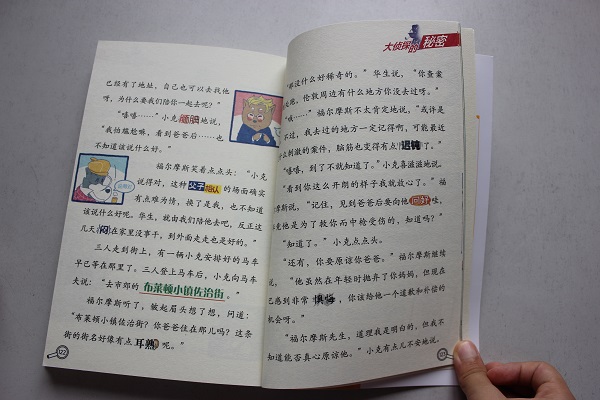 已经有了地址，自己也可以去找他
呀，为什么要我们陪你一起去呢？”
“嘻嘻……”小克腼腆地说，
“我怕尴尬嘛，看到爸爸后……也
不知道该说什么好。”
福尔摩斯笑着点点头：“小克
说得对，这种父子相认的场面确实
有点难为情，换了是我，也不知道
该说什么好呢。华生，就由我们陪他去吧，反正这
几天闷在家里没事干，到外面走走也是好的。”
三人走到街上，有一辆小克安排好的马车
早已等在那里了。三人登上马车后，小克向马车
夫说：“去市郊的布莱顿小镇佐治街。”
福尔摩斯听了，皱起眉头想了想，问道：
“布莱顿小镇佐治街？你爸爸住在那儿吗？这条
街的街名好像有点耳熟呢。”
122
大侦探的秘密
“那没什么好稀奇的。”华生说，“你查案
无数，伦敦周边有什么地方你没去过呀。”
“哦……”福尔摩斯不太肯定地说，“或许是
不过，我去过的地方一定记得啊，可能最近
什么刺激的案件，脑筋也变得有点迟钝了。”
“嘻嘻，到了不就知道了。”小克喜滋滋地说。
“看到你这么开朗的样子我就放心了。”福
摩斯说，“记住，见到爸爸后要向他问好哇，
竟他是为了救你而中枪受伤的，知道吗？”
“知道了。”小克点点头。
“还有，你要原谅你爸爸。”福尔摩斯继续
说，“他虽然在年轻时抛弃了你妈妈，但现在
已感到非常懊悔，你该给他一个道歉和补偿的
机会呀。”
“福尔摩斯先生，道理我是明白的，但我不
知道能否真心原谅他。”小克有点儿不安地说。
123